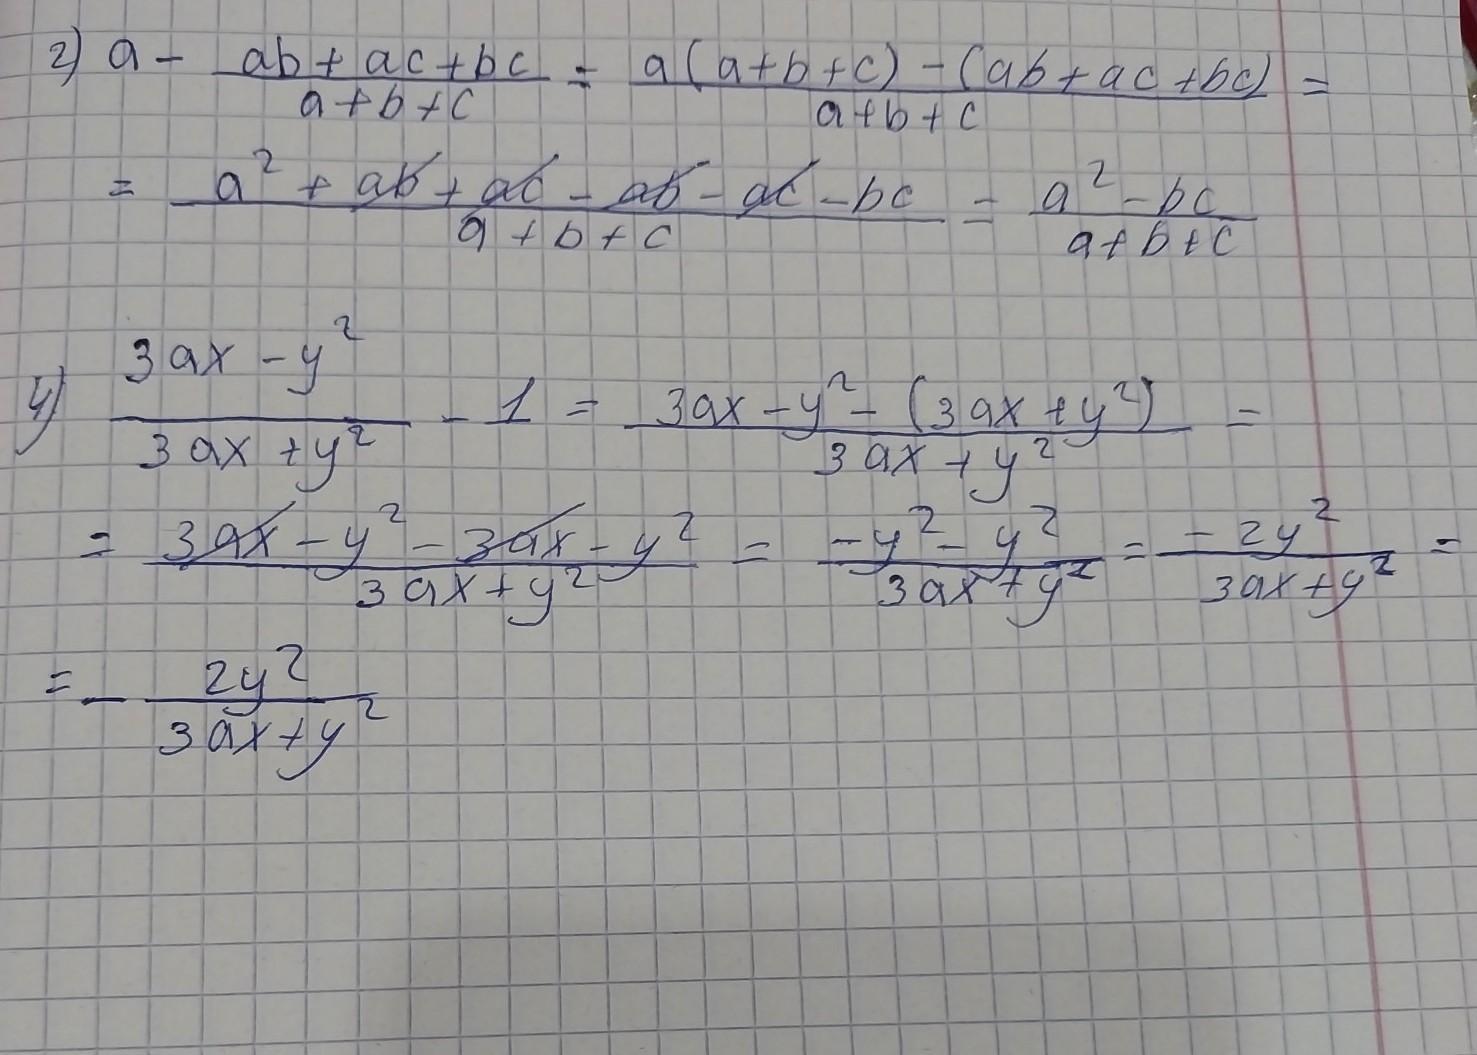 2) a - (ab + ac + bc)/(a + b + c) = (a(a + b + c) - (ab + ac + bc))/(a + b + c) =
= (a² + ab + ac - ab - ac - bc)/(a + b + c) = (a² - bc)/(a + b + c)
4) (3ax - y²)/(3ax + y²) - 1 = (3ax - y² - (3ax + y²))/(3ax + y²) =
= (3ax - y² - 3ax - y²)/(3ax + y²) = (-y² - y²)/(3ax + y²) = (-2y²)/(3ax + y²) =
= - (2y²)/(3ax + y²)